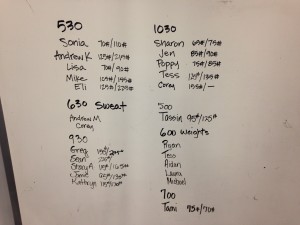 530
Sonia 70#/110#
Andrew K 125#/215#
Lisa 70#/90#
Mike 105#/155#
Eli 125#/225#
630 Sweat
Andrew M
Corey
930
Greg
Sean
Stacy A
Kathryn
1030
Sharon 65#/75#
Jen 85#/90#
Poppy 75#/85#
Tess
Corey 155#/—
500
Tassia 95#/125#
600 Weights
Ryan
Tess
Aidan
Laura
Michael
700
Tami 75#/70#